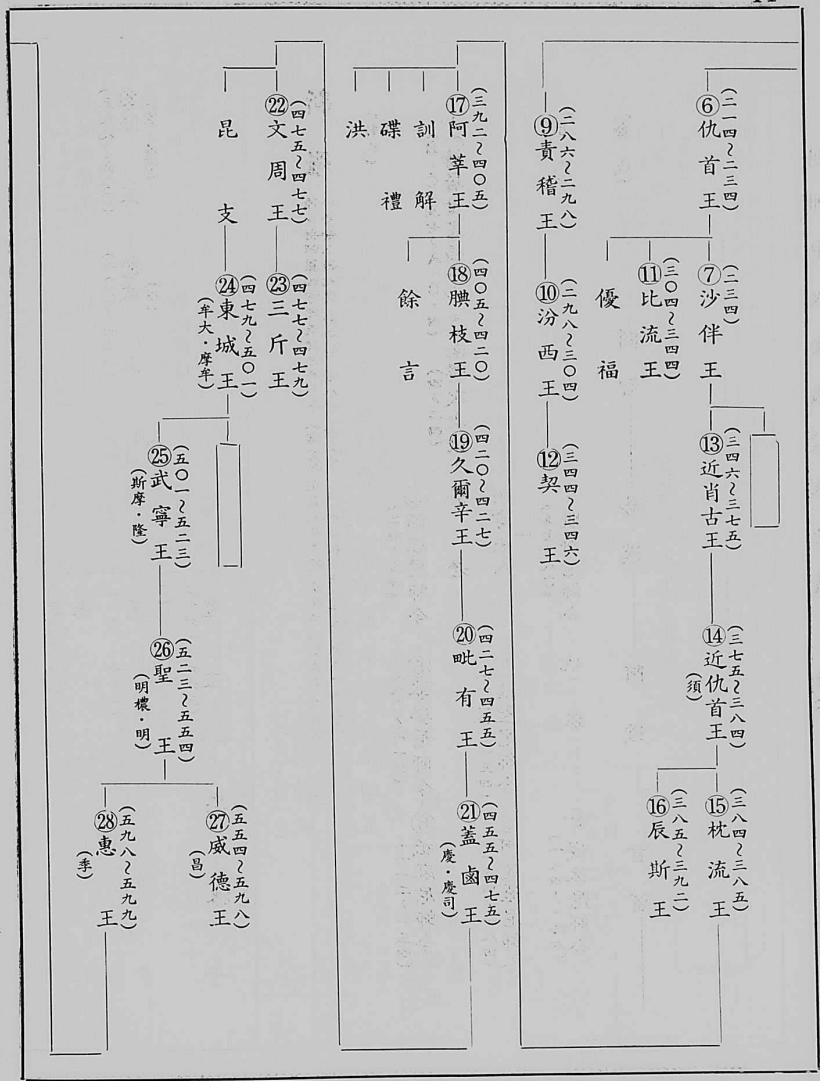 ⑥仇首王
(二一四~二三四)
⑦沙伴王
(二三四)
⑪比流王
(三〇四~三四四)
優福
⑬近肖古王
(三四六~三七五)
⑭近仇首王
(三七五~三八四)
(須)
⑮枕流王
(三八四~三八五)
⑯辰斯王
(三八五~三九二)
⑨責稽王
(二八六~二九八)
⑩汾西王
(二九八~三〇四)
⑫契王
(三四四~三四六)
⑰阿莘王
(三九二~四〇五)
訓解
碟禮
洪
⑱腆枝王
(四〇五~四二〇)
餘言
⑲久爾辛王
(四二〇~四二七)
⑳毗有王
(四二七~四五五)
㉑蓋鹵王
(四五五~四七五)
(慶·慶司)
㉒文周王
(四七五~四七七)
昆支
㉓三斤王
(四七七~四七九)
㉔東城王
(四七九~五〇一)
(牟大·摩牟)
㉕武寧王
(五〇一~五二三)
(斯摩·隆)
㉖聖王
(五二三~五五四)
(明襛·明)
㉗威德王
(五五四~五九八)
(昌)
㉘惠王
(五九八~五九九)
(季)